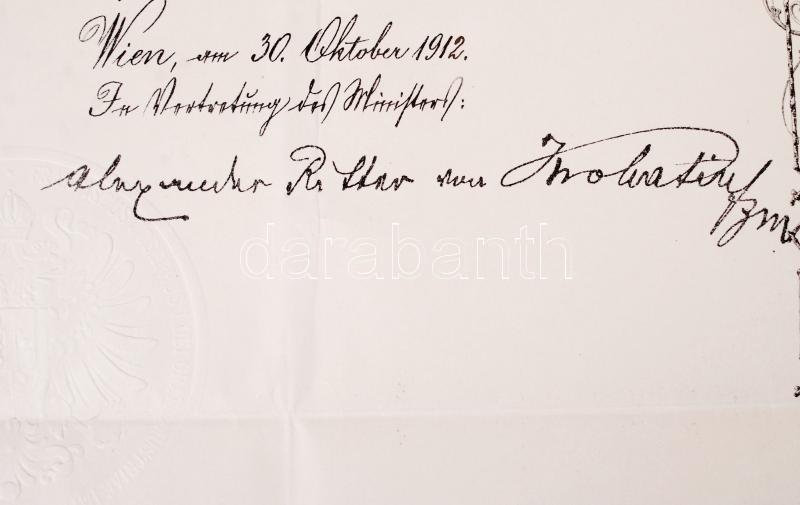 Wien, am 30. Oktober 1912.
In Vertretung des Ministers:
Alexander Ritter von Krobatin
FZM
darabanth